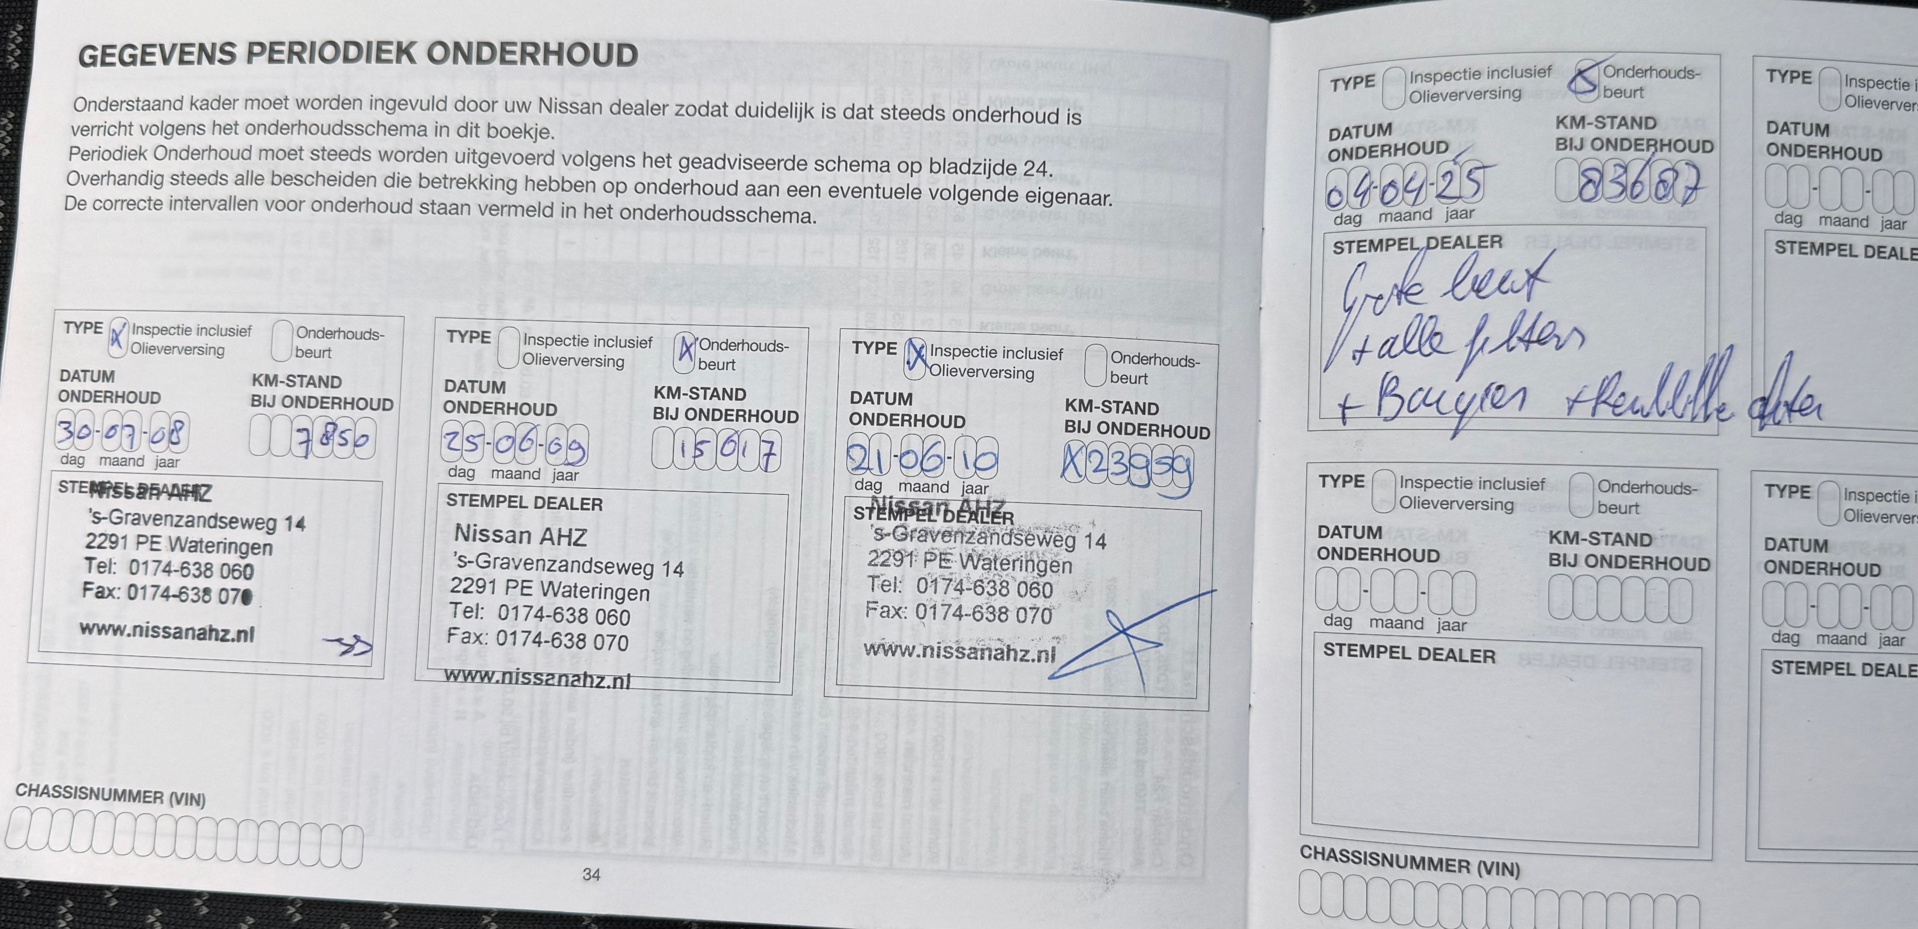 GEGEVENS PERIODIEK ONDERHOUD
Onderstaand kader moet worden ingevuld door uw Nissan dealer zodat duidelijk is dat steeds onderhoud is
verricht volgens het onderhoudsschema in dit boekje.
Periodiek Onderhoud moet steeds worden uitgevoerd volgens het geadviseerde schema op bladzijde 24.
Overhandig steeds alle bescheiden die betrekking hebben op onderhoud aan een eventuele volgende eigenaar.
De correcte intervallen voor onderhoud staan vermeld in het onderhoudsschema.
TYPE X Inspectie inclusief Olieverversing Onderhouds-
beurt
DATUM
ONDERHOUD
KM-STAND
BIJ ONDERHOUD
30-07-08 7850
dag maand jaar
STEMPEL DEALER
Nissan AHZ
's-Gravenzandseweg 14
2291 PE Wateringen
Tel: 0174-638 060
Fax: 0174-638 070
www.nissanahz.nl
TYPE Inspectie inclusief Olieverversing X Onderhouds-
beurt
DATUM
ONDERHOUD
KM-STAND
BIJ ONDERHOUD
25-06-09 15017
dag maand jaar
STEMPEL DEALER
Nissan AHZ
's-Gravenzandseweg 14
2291 PE Wateringen
Tel: 0174-638 060
Fax: 0174-638 070
www.nissanahz.nl
TYPE X Inspectie inclusief Olieverversing Onderhouds-
beurt
DATUM
ONDERHOUD
KM-STAND
BIJ ONDERHOUD
21-06-10 X23959
dag maand jaar
STEMPEL DEALER
Nissan AHZ
's-Gravenzandseweg 14
2291 PE Wateringen
Tel: 0174-638 060
Fax: 0174-638 070
www.nissanahz.nl
CHASSISNUMMER (VIN)
34
TYPE Inspectie inclusief Olieverversing Onderhouds-
beurt
DATUM
ONDERHOUD
KM-STAND
BIJ ONDERHOUD
04-04-25 83687
dag maand jaar
STEMPEL DEALER
Grote beurt
+ alle filters
+ Bougies
TYPE Inspectie i
Olieverver
DATUM
ONDERHOUD
dag maand jaar
STEMPEL DEALE
TYPE Inspectie inclusief Olieverversing Onderhouds-
beurt
DATUM
ONDERHOUD
KM-STAND
BIJ ONDERHOUD
dag maand jaar
STEMPEL DEALER
TYPE Inspectie i
Olieverver
DATUM
ONDERHOUD
dag maand jaar
STEMPEL DEALE
CHASSISNUMMER (VIN)